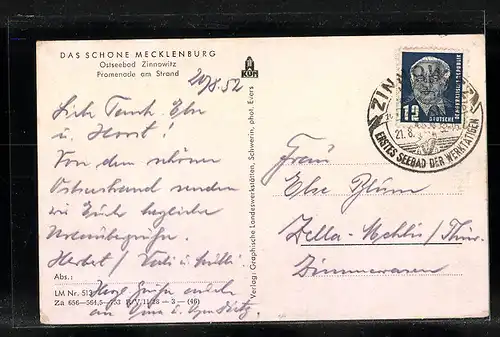 DAS SCHÖNE MECKLENBURG
Ostseebad Zinnowitz
Promenade am Strand
KÖN
20/8.52
Liebe Tante Else
u. Horst!
Von dem schönen
Ostseestrand senden
wir Euch herzliche
Urlaubsgrüße.
Herbert /
Abs.:
LM Nr. 513
Herzl. Grüße
Za 656—564,5—753 R/V/11/28 — 3 — (46)
an Oma u. Opa
Verlag: Graphische Landeswerkstätten, Schwerin, phot. Evers
ZINNOWITZ
21.8.
ERSTES SEEBAD DER WERKTÄTIGEN
12
DEUTSCHE
DEMOKRATISCHE REPUBLIK
Frau
Else Blum
Zella-Mehlis/Thür.
Zimmerwaren